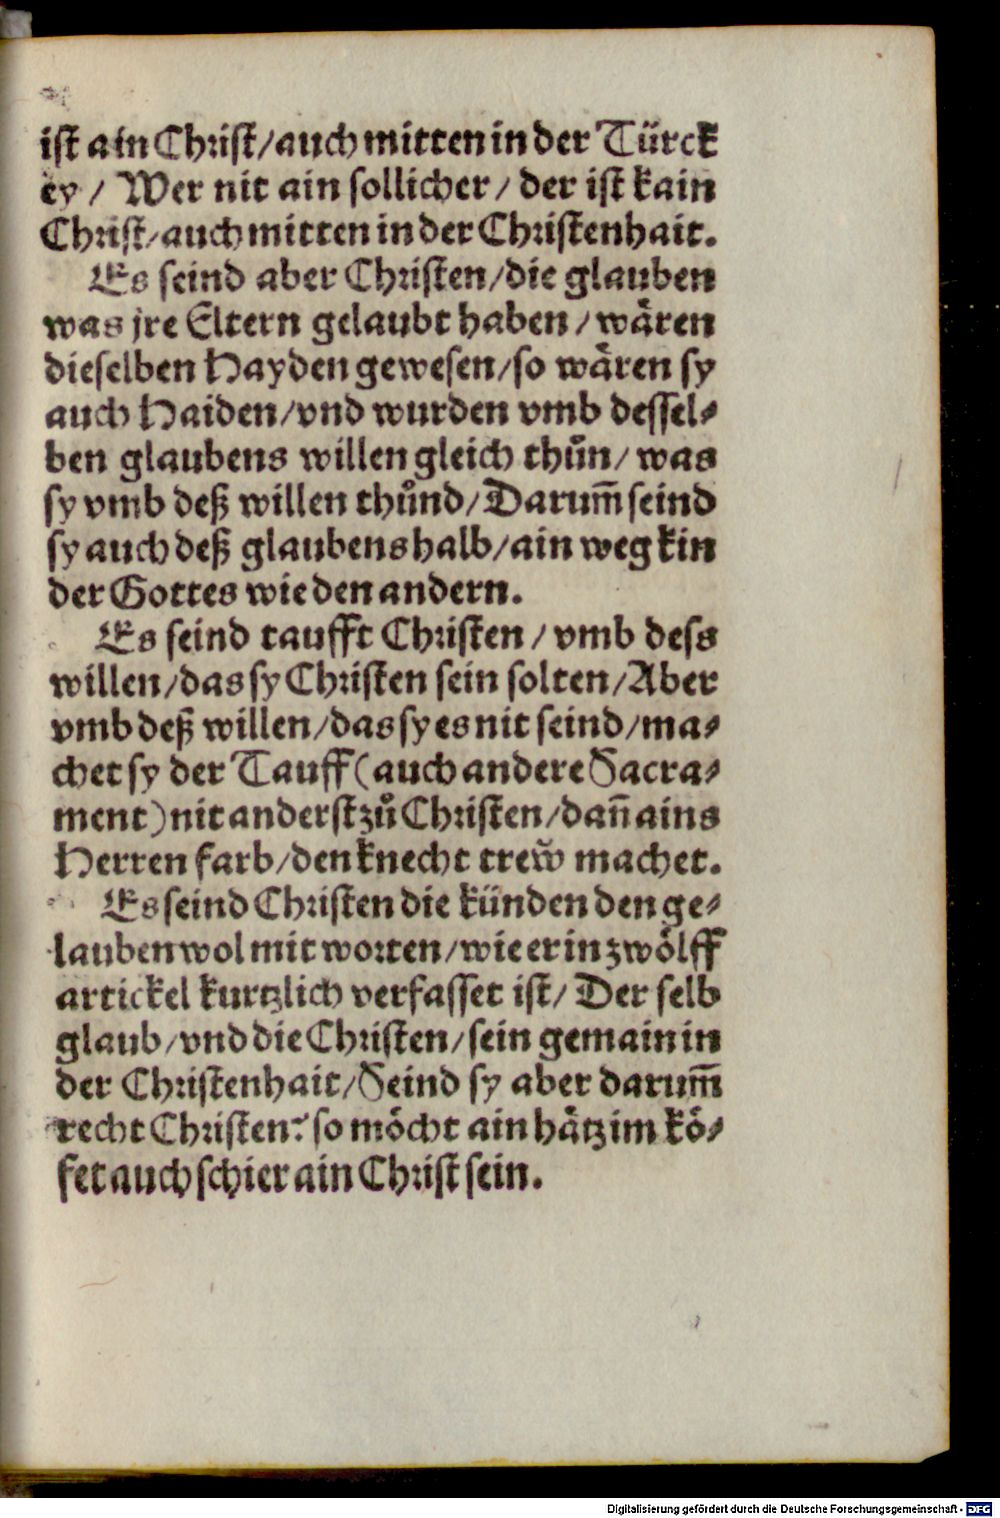 ist ain Christ/auch mitten in der Türck
ey / Wer nit ain sollicher / der ist kain
Christ/auch mitten in der Christenhait.
Es seind aber Christen/die glauben
was jre Eltern gelaubt haben / wåren
dieselben Hayden gewesen/so wåren sy
auch Haiden/vnd wurden vmb dessel⸗
ben glaubens willen gleich thůn/ was
sy vmb deß willen thůnd/Darum̄ seind
sy auch deß glaubens halb/ain weg kin
der Gottes wie den andern.
Es seind taufft Christen / vmb dess
willen/das sy Christen sein solten/Aber
vmb deß willen/das sy es nit seind/ma⸗
chet sy der Tauff(auch andere Sacra⸗
ment)nit anderst zů Christen/dan̄ ains
Herren farb/den knecht trew̆ machet.
Es seind Christen die künden den ge⸗
lauben wol mit worten/wie er in zwölff
artickel kurtzlich verfasset ist/ Der selb
glaub/vnd die Christen/sein gemain in
der Christenhait/Seind sy aber darum̄
recht Christen? so möcht ain håtz im kö⸗
fet auch schier ain Christ sein.
Digitalisierung gefördert durch die Deutsche Forschungsgemeinschaft - DFG